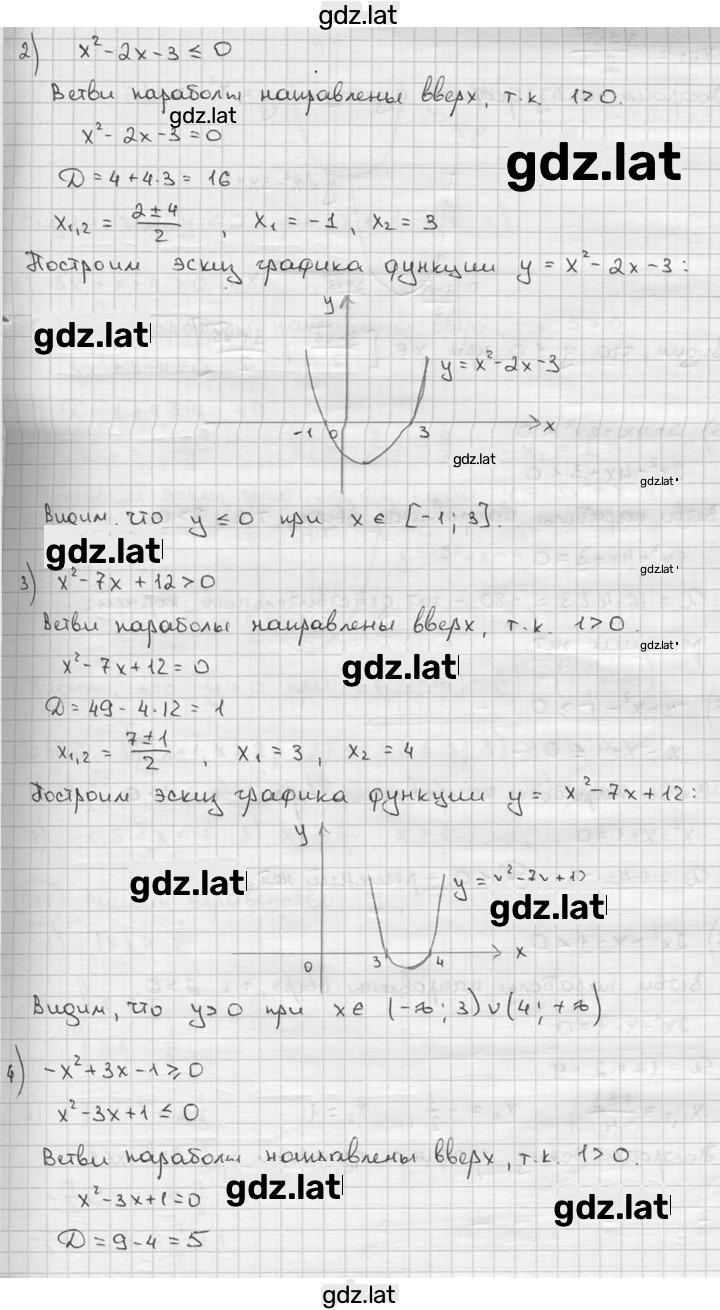 gdz.lat
2) x²-2x-3 ≤ 0
Ветви параболы направлены вверх, т.к. 1>0.
gdz.lat
x²-2x-3=0
gdz.lat
D = 4+4·3 = 16
x₁,₂ = (2±4)/2 , x₁ = -1, x₂ = 3
Построим эскиз графика функции y = x²-2x-3:
y
gdz.lat
y = x²-2x-3
-1 0 3 x
gdz.lat
gdz.lat
Видим, что y ≤ 0 при x ∈ [-1; 3].
gdz.lat
gdz.lat
3) x²-7x+12>0
Ветви параболы направлены вверх, т.к. 1>0.
gdz.lat
x²-7x+12=0
gdz.lat
D = 49-4·12 = 1
x₁,₂ = (7±1)/2 , x₁ = 3, x₂ = 4
Построим эскиз графика функции y = x²-7x+12:
y
gdz.lat
y = x²-7x+12
gdz.lat
0 3 4 x
Видим, что y>0 при x∈ (-∞; 3)∪(4; +∞)
4) -x²+3x-1 ⩾ 0
x²-3x+1 ≤ 0
Ветви параболы направлены вверх, т.к. 1>0.
x²-3x+1=0
gdz.lat
gdz.lat
D = 9-4 = 5
gdz.lat